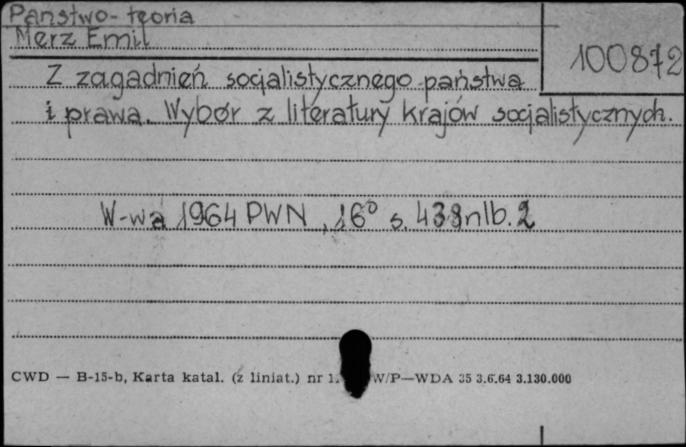 Państwo-teoria
Merz Emil
100872
Z zagadnień socjalistycznego państwa
i prawa. Wybór z literatury krajów socjalistycznych.
W-wa 1964 PWN, 16° s. 438 nlb. 2
CWD — B-15-b, Karta katal. (z liniat.) nr 1. W/P—WDA 35 3.6.64 3.130.000